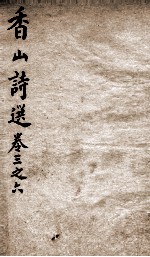 香山詩選卷三之六